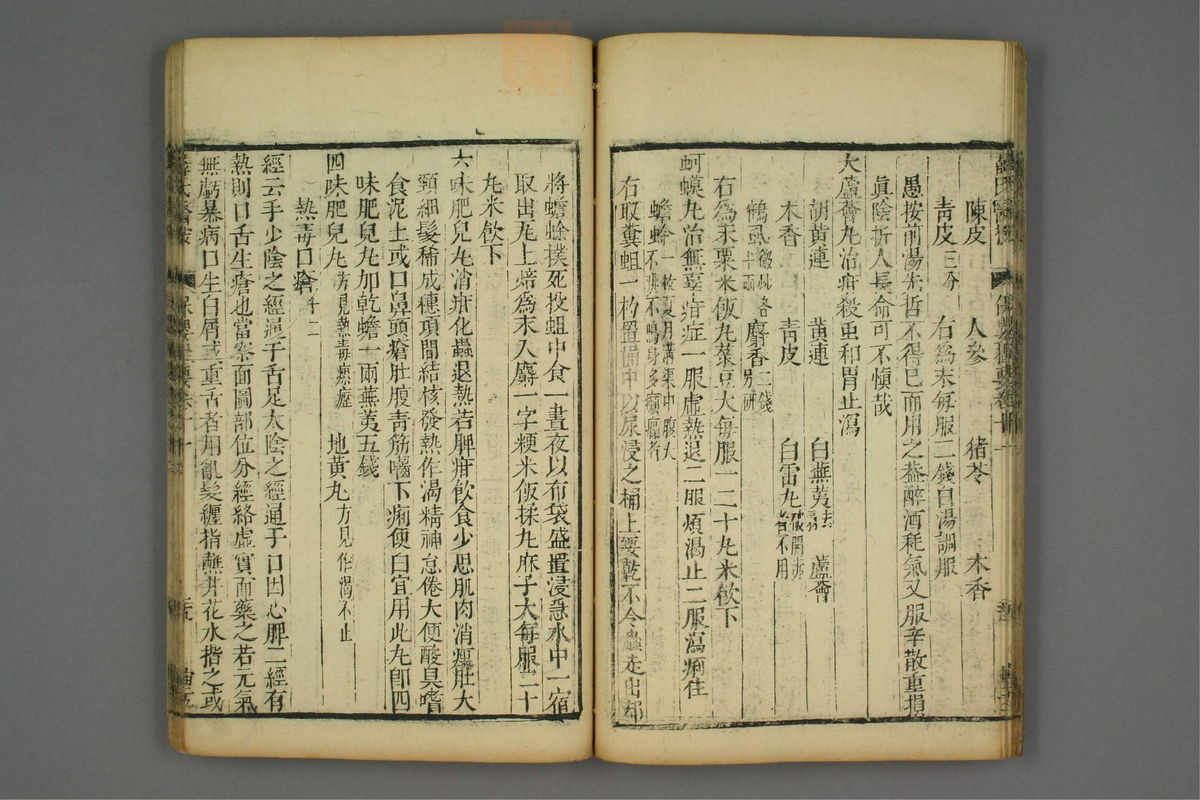 陳皮　人參　豬苓　木香
青皮三分　右為末每服二錢白湯調服
愚按前湯先哲不得已而用之蓋醉酒耗氣又服辛散重損
眞陰折人長命可不慎哉
大蘆薈丸治疳殺虫和胃止瀉
胡黃連　黃連　白蕪荑去扇　蘆薈
木香　青皮　白雷丸破開赤者不用
鶴虱微炒各半兩　麝香二錢另研
右為末粟米飯丸菉豆大每服一二十丸米飲下
蚵蟆丸治無辜疳症一服虛熱退二服煩渴止三服瀉痢住
蟾蜍一枚夏月溝渠中腹大不跳不鳴身多癩瘟者
右取糞蛆一杓置桶中以尿浸之桶上要乾不令蟲走出却
將蟾蜍撲死投蛆中食一晝夜以布袋盛置浸急水中一宿
取出瓦上焙為末入麝一字粳米飯揉丸麻子大每服二十
丸米飲下
六味肥兒丸消疳化蟲退熱若脾疳飲食少思肌肉消瘦肚大
頸細髮稀成穗項間結核發熱作渴精神怠倦大便酸臭嗜
食泥土或口鼻頭瘡肚腹青筋嚙下痢便白宜用此丸卽四
味肥兒丸加乾蟾一兩蕪荑五錢
四味肥兒丸方見熱毒瘰癧　地黃丸方見作渴不止
熱毒口瘡十二
經云手少陰之經通于舌足太陰之經通于口因心脾二經有
熱則口舌生瘡也當察面圖部位分經絡虛實而藥之若元氣
無虧暴病口生白屑或重舌者用亂髮纏指蘸井花水揩之或